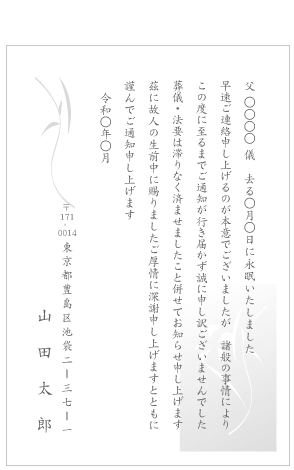 父 〇〇〇〇 儀 去る〇月〇日に永眠いたしました
早速ご連絡申し上げるのが本意でございましたが 諸般の事情により
この度に至るまでご通知が行き届かず誠に申し訳ございませんでした
葬儀・法要は滞りなく済ませましたこと併せてお知らせ申し上げます
茲に故人の生前中に賜りましたご厚情に深謝申し上げますとともに
謹んでご通知申し上げます
令和〇年〇月
〒171-0014
東京都豊島区池袋二ー三七ー一
山田太郎